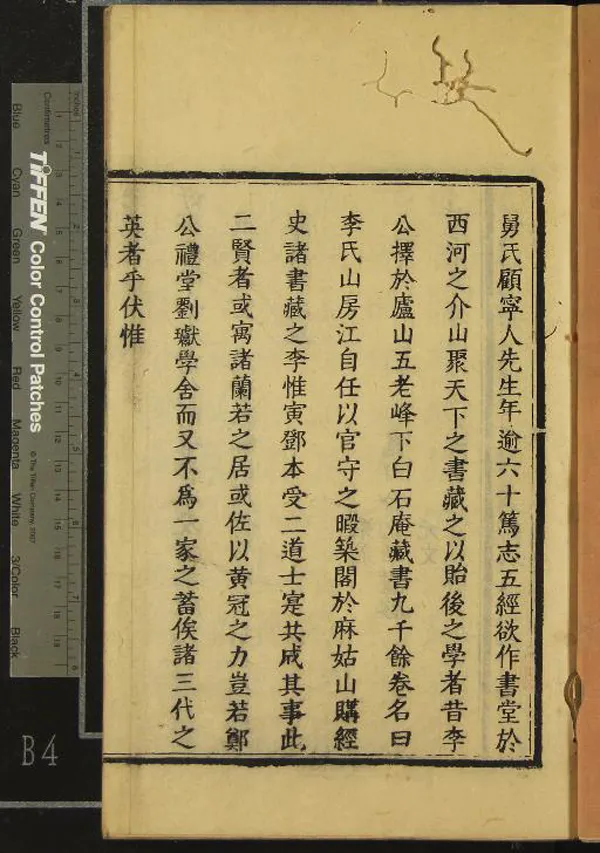 舅氏顧寧人先生年逾六十篤志五經欲作書堂於
西河之介山聚天下之書藏之以貽後之學者昔李
公擇於廬山五老峰下白石庵藏書九千餘卷名曰
李氏山房江自任以官守之暇築閣於麻姑山購經
史諸書藏之李惟寅鄧本受二道士寔共成其事此
二賢者或寓諸蘭若之居或佐以黄冠之力豈若鄭
公禮堂劉瓛學舍而又不爲一家之蓄俟諸三代之
英者乎伏惟
Inches
Centimetres
TIFFEN Color Control Patches
© The Tiffen Company, 2007
Blue Cyan Green Yellow Red Magenta White 3/Color Black
B4